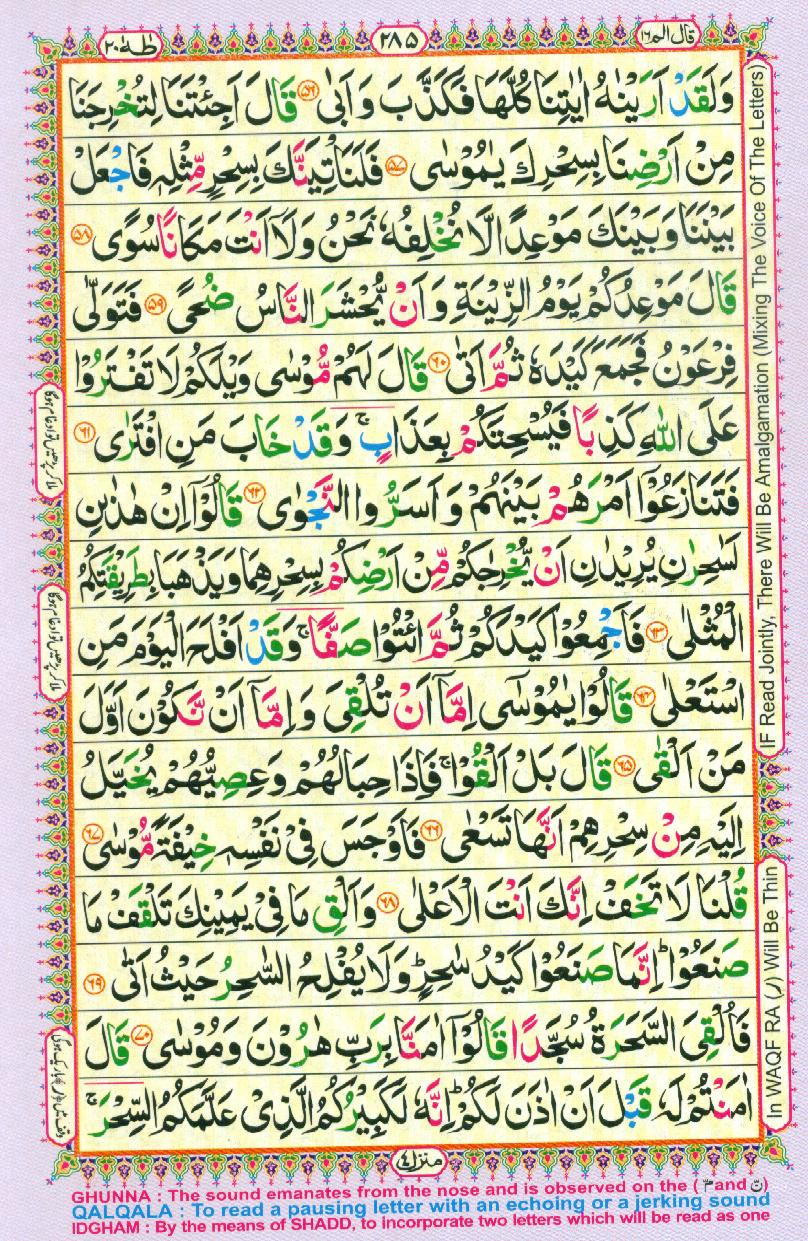 قال الم ١٦
٢٨٥
طٰهٰ ٢٠
وَلَقَدْ اَرَيْنٰهُ اٰيٰتِنَا كُلَّهَا فَكَذَّبَ وَاَبٰى ﴿٥٦﴾ قَالَ اَجِئْتَنَا لِتُخْرِجَنَا
مِنْ اَرْضِنَا بِسِحْرِكَ يٰمُوْسٰى ﴿٥٧﴾ فَلَنَاْتِيَنَّكَ بِسِحْرٍ مِّثْلِهٖ فَاجْعَلْ
بَيْنَنَا وَبَيْنَكَ مَوْعِدًا لَّا نُخْلِفُهٗ نَحْنُ وَلَاۤ اَنْتَ مَكَانًا سُوًى ﴿٥٨﴾
قَالَ مَوْعِدُكُمْ يَوْمُ الزِّيْنَةِ وَاَنْ يُّحْشَرَ النَّاسُ ضُحًى ﴿٥٩﴾ فَتَوَلّٰى
فِرْعَوْنُ فَجَمَعَ كَيْدَهٗ ثُمَّ اَتٰى ﴿٦٠﴾ قَالَ لَهُمْ مُّوْسٰى وَيْلَكُمْ لَا تَفْتَرُوْا
عَلَى اللّٰهِ كَذِبًا فَيُسْحِتَكُمْ بِعَذَابٍ ۚ وَقَدْ خَابَ مَنِ افْتَرٰى ﴿٦١﴾
فَتَنَازَعُوْۤا اَمْرَهُمْ بَيْنَهُمْ وَاَسَرُّوا النَّجْوٰى ﴿٦٢﴾ قَالُوْۤا اِنْ هٰذٰىنِ
لَسٰحِرٰنِ يُرِيْدٰنِ اَنْ يُّخْرِجٰكُمْ مِّنْ اَرْضِكُمْ بِسِحْرِهِمَا وَيَذْهَبَا بِطَرِيْقَتِكُمُ
الْمُثْلٰى ﴿٦٣﴾ فَاَجْمِعُوْا كَيْدَكُمْ ثُمَّ ائْتُوْا صَفًّا ۚ وَقَدْ اَفْلَحَ الْيَوْمَ مَنِ
اسْتَعْلٰى ﴿٦٤﴾ قَالُوْا يٰمُوْسٰۤى اِمَّاۤ اَنْ تُلْقِيَ وَاِمَّاۤ اَنْ نَّكُوْنَ اَوَّلَ
مَنْ اَلْقٰى ﴿٦٥﴾ قَالَ بَلْ اَلْقُوْا ۚ فَاِذَا حِبَالُهُمْ وَعِصِيُّهُمْ يُخَيَّلُ
اِلَيْهِ مِنْ سِحْرِهِمْ اَنَّهَا تَسْعٰى ﴿٦٦﴾ فَاَوْجَسَ فِيْ نَفْسِهٖ خِيْفَةً مُّوْسٰى ﴿٦٧﴾
قُلْنَا لَا تَخَفْ اِنَّكَ اَنْتَ الْاَعْلٰى ﴿٦٨﴾ وَاَلْقِ مَا فِيْ يَمِيْنِكَ تَلْقَفْ مَا
صَنَعُوْا ؕ اِنَّمَا صَنَعُوْا كَيْدُ سٰحِرٍ ؕ وَلَا يُفْلِحُ السّٰحِرُ حَيْثُ اَتٰى ﴿٦٩﴾
فَاُلْقِيَ السَّحَرَةُ سُجَّدًا قَالُوْۤا اٰمَنَّا بِرَبِّ هٰرُوْنَ وَمُوْسٰى ﴿٧٠﴾ قَالَ
اٰمَنْتُمْ لَهٗ قَبْلَ اَنْ اٰذَنَ لَكُمْ ؕ اِنَّهٗ لَكَبِيْرُكُمُ الَّذِيْ عَلَّمَكُمُ السِّحْرَ ۚ
منزل ٤
IF Read Jointly, There Will Be Amalgamation (Mixing The Voice Of The Letters)
In WAQF RA (ر) Will Be Thin
GHUNNA : The sound emanates from the nose and is observed on the ( مّ and نّ )
QALQALA : To read a pausing letter with an echoing or a jerking sound
IDGHAM : By the means of SHADD, to incorporate two letters which will be read as one